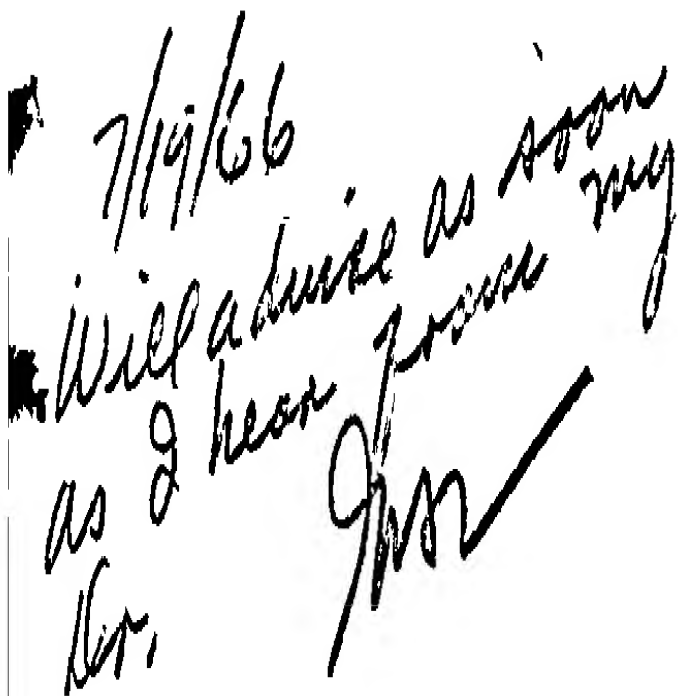 7/19/66
Will advise as soon
as I hear from my
Dr.